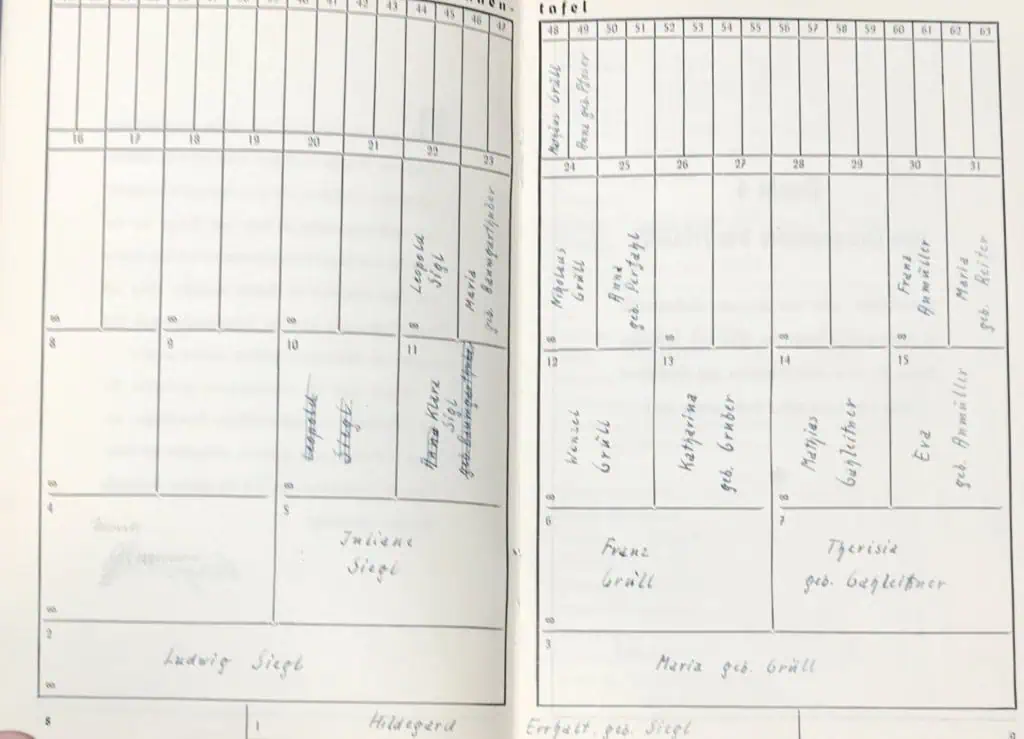 tafel
44 45 46 47
48 49 50 51 52 53 54 55 56 57 58 59 60 61 62 63
Mathäus Grüll
Anna geb.
16 17 18 19 20 21 22 23
24 25 26 27 28 29 30 31
Leopold
Sigl
Maria
geb. Baumgarthuber
Nikolaus
Grüll
Anna
geb. Perfahl
Franz
Anmüller
Maria
geb. Reiter
∞ ∞ ∞ ∞
∞ ∞ ∞ ∞
8 9 10 11
12 13 14 15
Leopold
Siegl
Anna Klara
Sigl
geb. Baumgarthuber
Wenzel
Grüll
Katharina
geb. Gruber
Mathias
Gahleitner
Eva
geb. Anmüller
∞ ∞
∞ ∞
4 5
6 7
Juliana
Siegl
Franz
Grüll
Therisia
geb. Gahleitner
∞
∞
2
3
Ludwig Siegl
Maria geb. Grüll
∞
8 1 Hildegard Errhalt. geb. Siegl 9